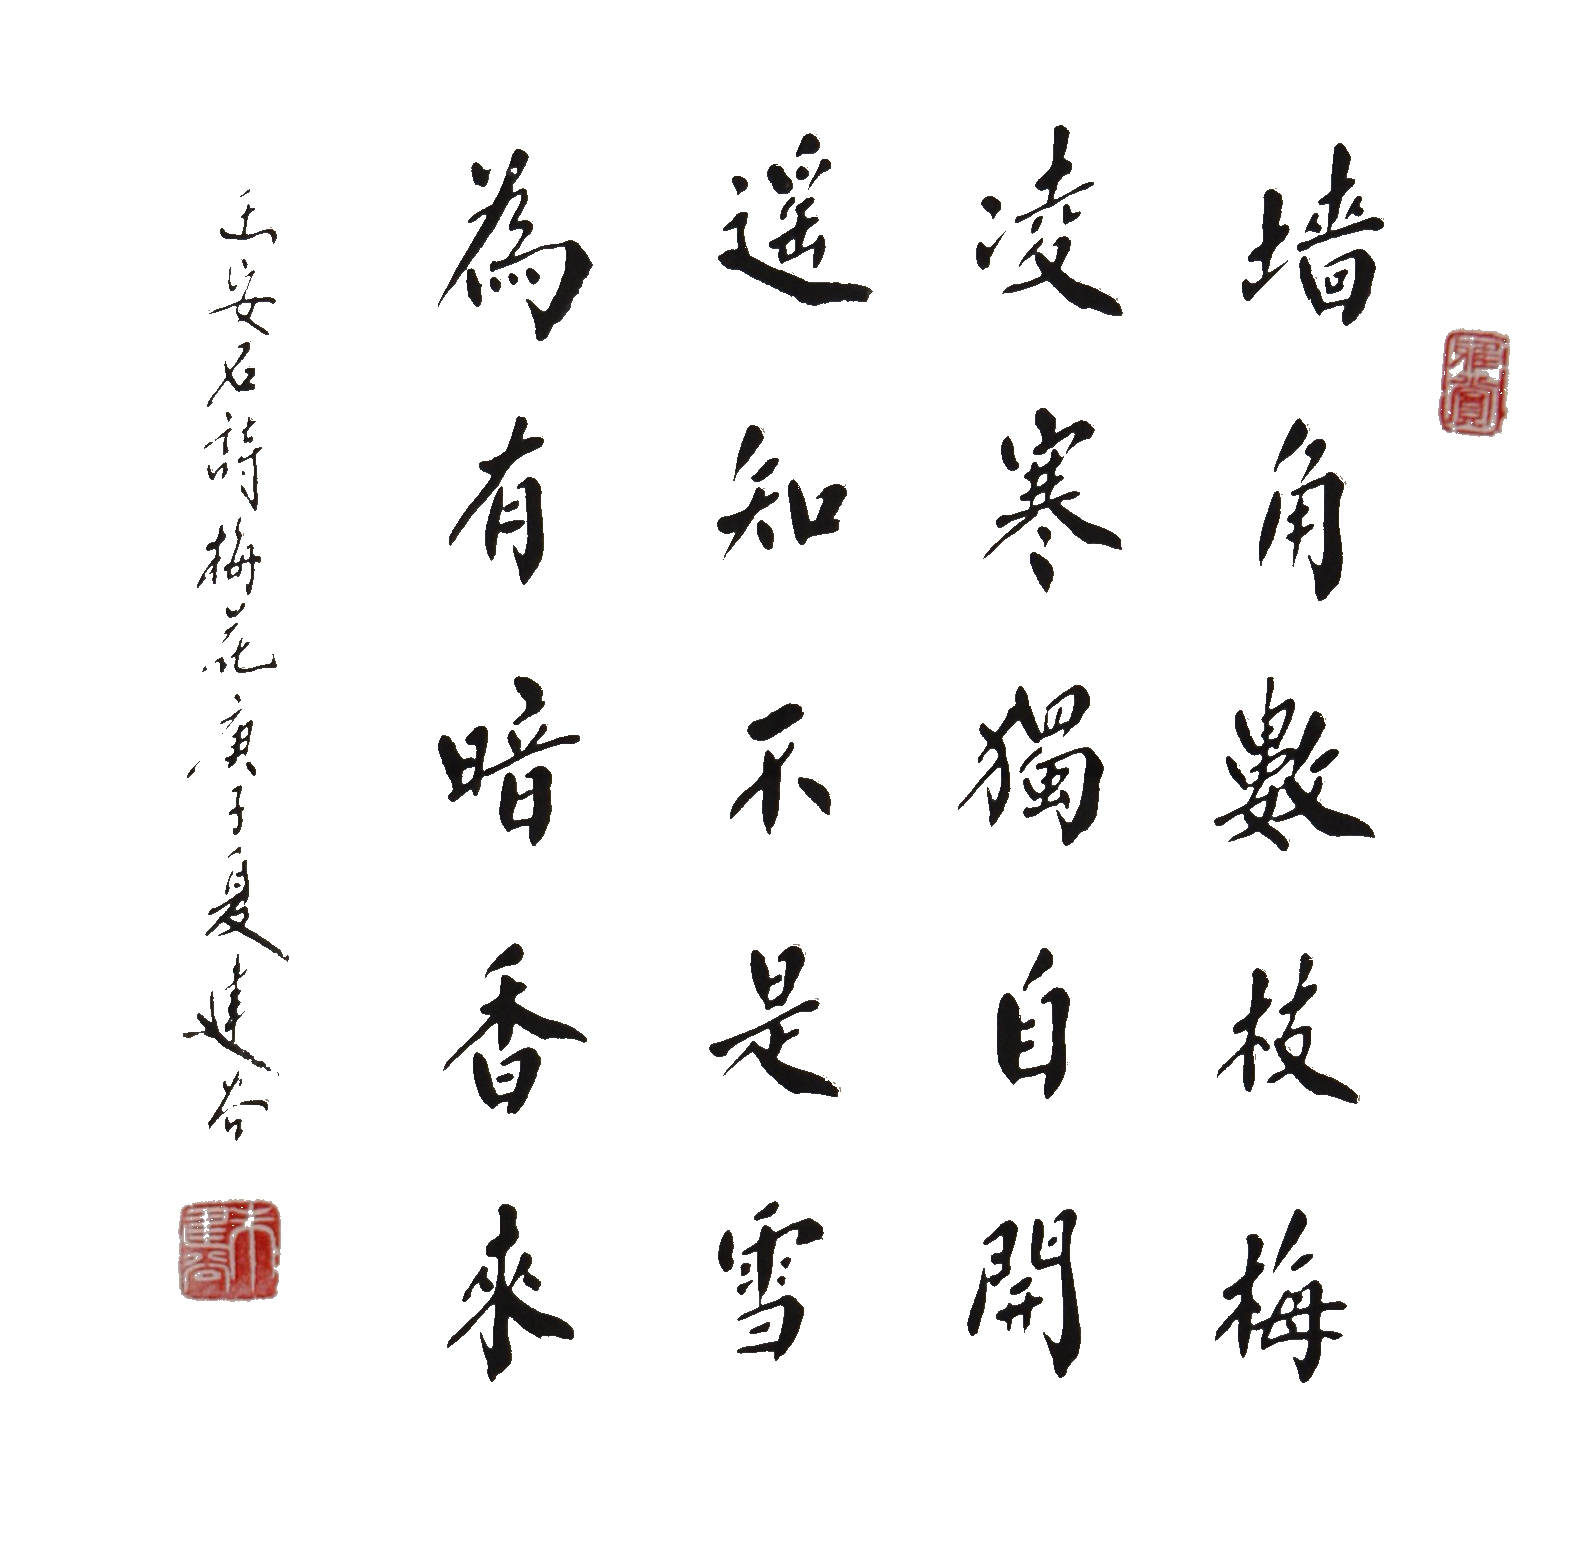 墻角數枝梅
凌寒獨自開
遥知不是雪
為有暗香來
王安石詩梅花庚子夏建谷
雅賞